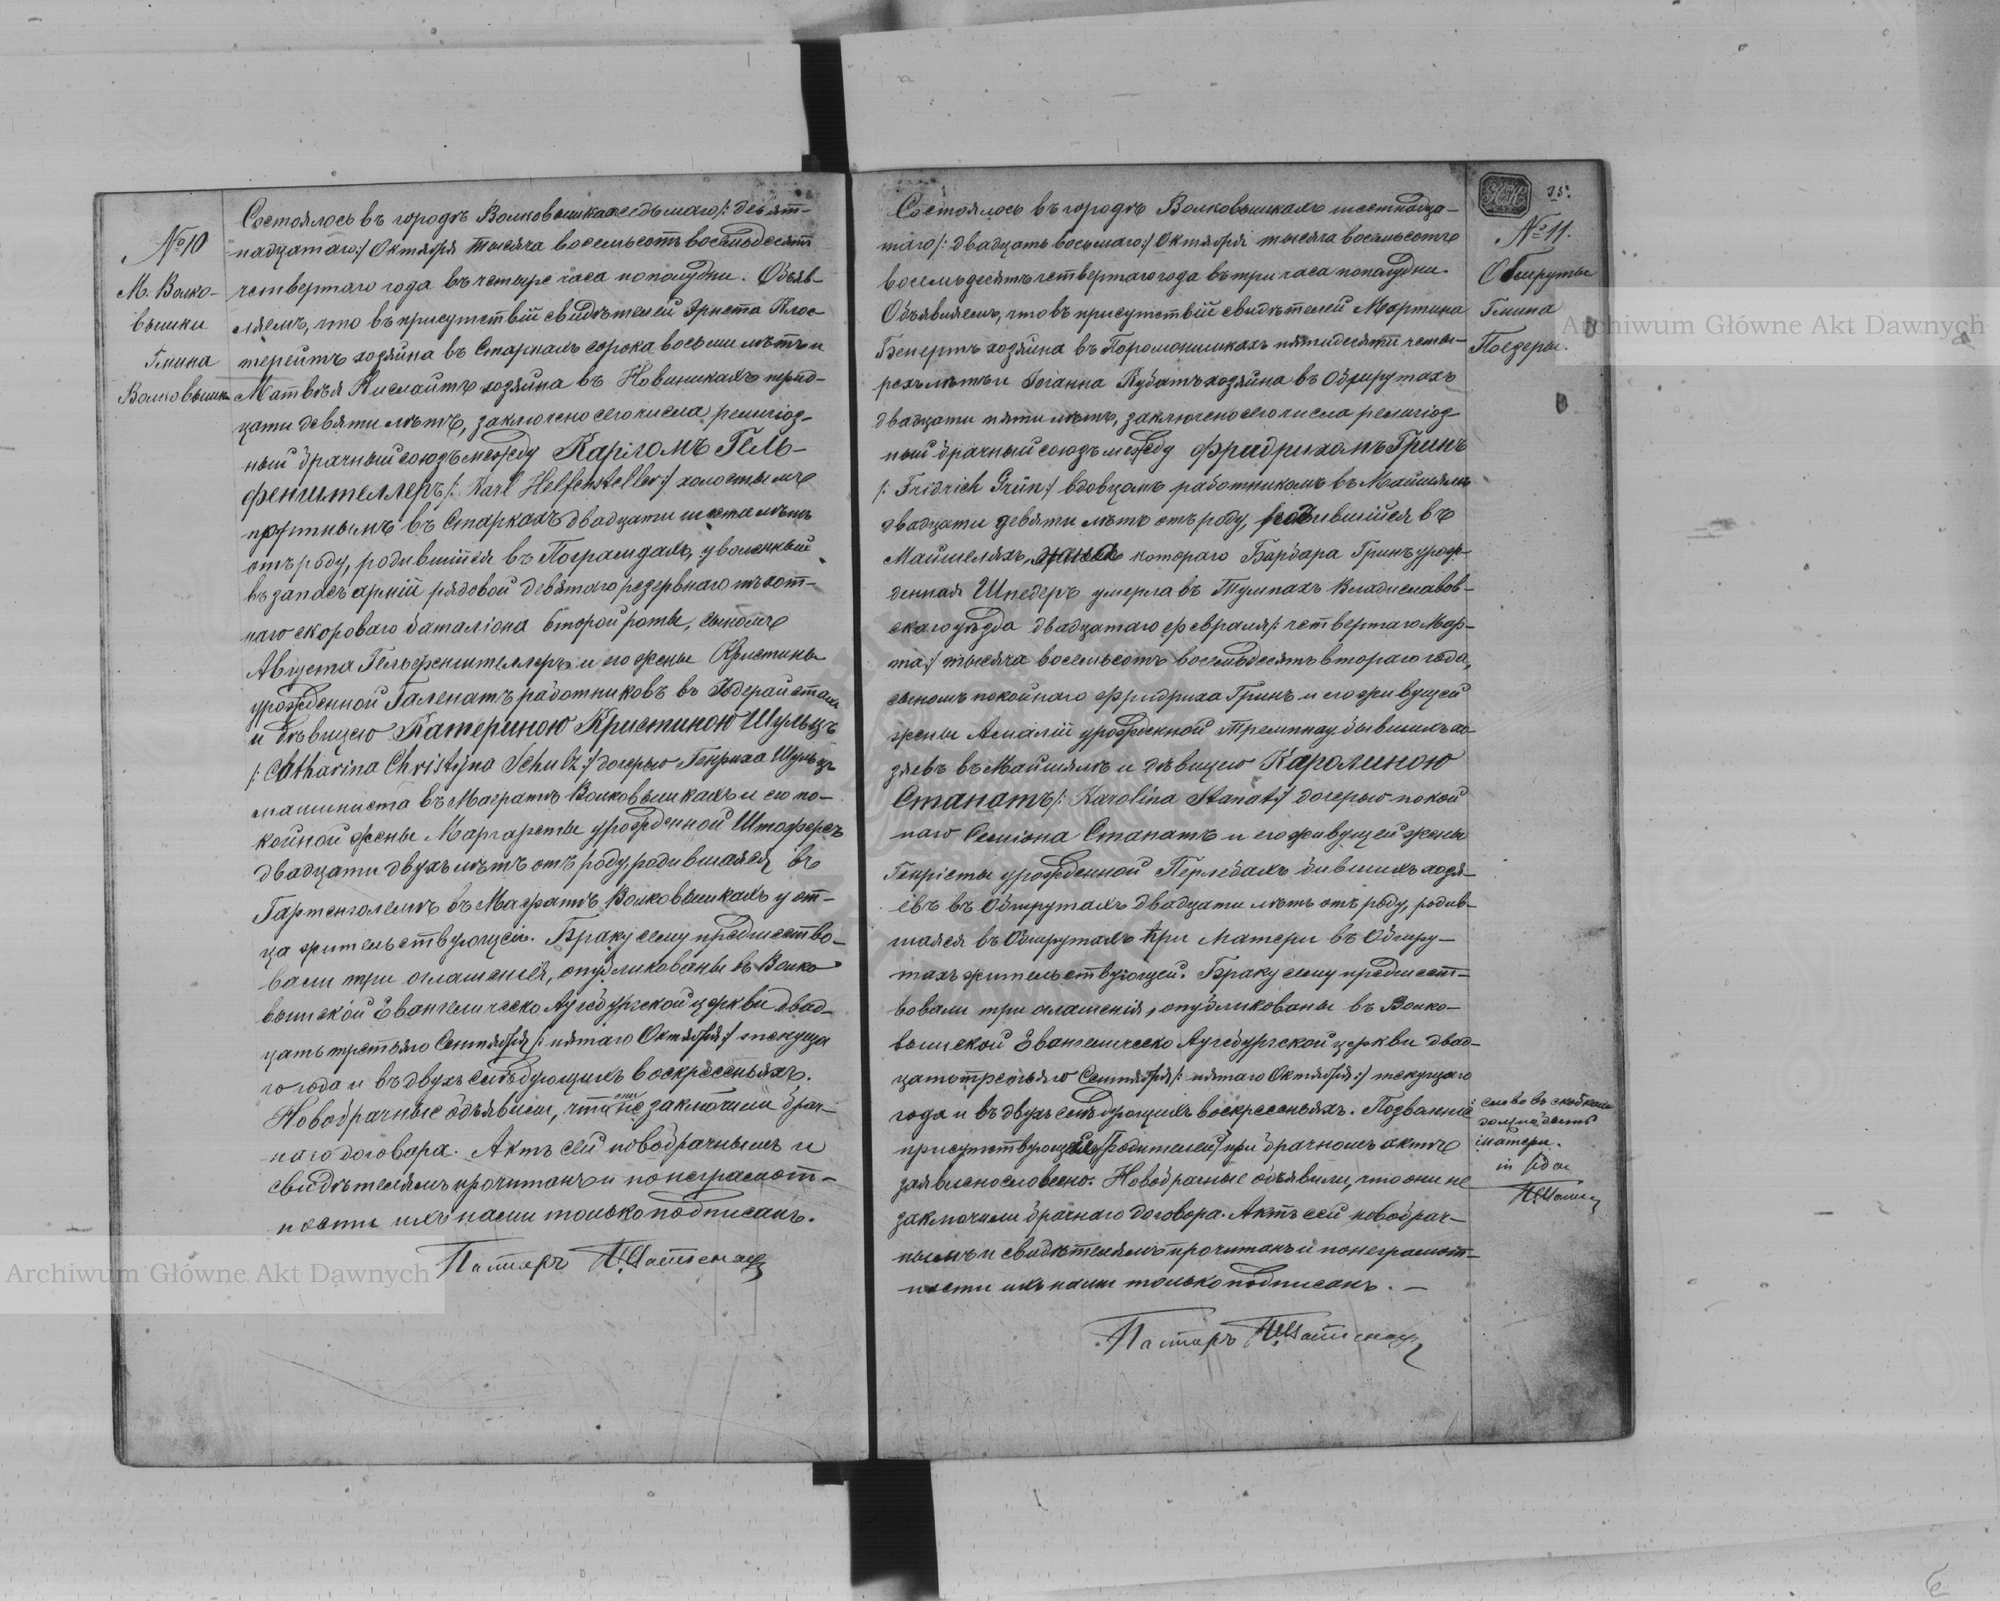 № 10
М. Волко-
вышки
Гмина
Волковышк.
Состоялось въ городѣ Волковышкахъ седьмаго /: девят-
надцатаго :/ Октября тысяча восемьсотъ восемьдесятъ
четвертаго года въ четыре часа пополудни. Объяв-
ляемъ, что въ присутствіи свидѣтелей Эрнста Клос-
терейтъ хозяина въ Старкахъ сорока восьми лѣтъ и
Матвѣя Кислайтъ хозяина въ Новиникахъ трид-
цати девяти лѣтъ, заключено сего числа религіоз-
ный брачный союзъ между Карломъ Гель-
фенштеллеръ /: Karl Helfensteller :/ холостымъ
портнымъ въ Старкахъ двадцати шести лѣтъ
отъ роду, родившійся въ Пограмдахъ, уволенный
въ запасъ арміи рядовой девятаго резервнаго пѣхот-
наго скороваго баталіона второй роты, сыномъ
Августа Гельфенштеллеръ и его жены Кристины
урожденной Галенатъ работниковъ въ
и дѣвицею Катериною Кристиною Шульцъ
/: Catharina Christina Schulz :/ дочерью Генриха Шульцъ
машиниста въ Маератъ Волковышкахъ и его по-
койной жены Маргареты урожденной Штоферъ
двадцати двухъ лѣтъ отъ роду, родившаяся въ
Гартенголемъ въ Маератъ Волковышкахъ у от-
ца жительствующей. Браку сему предшество-
вали три оглашенія, опубликованы въ Волко-
вышской Евангелическо Аугсбургской церкви двад-
цать третьяго Сентября /: пятаго Октября :/ текуща-
го года и въ двухъ слѣдующихъ воскресеньяхъ.
Новобрачные объявили, что они не заключили брач-
наго договора. Актъ сей новобрачнымъ и
свидѣтелямъ прочитанъ и по неграмот-
ности ихъ нами только подписанъ.
Пасторъ
35.
№ 11.
Обшруты
Гмина
Поедеры.
Состоялось въ городѣ Волковышкахъ шестнадца-
таго /: двадцать восьмаго :/ Октября тысяча восемьсотъ
восемьдесятъ четвертаго года въ три часа пополудни.
Объявляемъ, что въ присутствіи свидѣтелей Мартина
Бепертъ хозяина въ Поромонишкахъ пятидесяти четы-
рехъ лѣтъ и Іоганна Кубатъ хозяина въ Обшрутахъ
двадцати пяти лѣтъ, заключено сего числа религіоз-
ный брачный союзъ между Фридрихомъ Гринъ
/: Fridrich Grün :/ вдовцомъ работникомъ въ Майшеляхъ
двадцати девяти лѣтъ отъ роду, родившійся въ
Майшеляхъ, жена котораго Барбара Гринъ урож-
денная Шнедеръ умерла въ Тумпахъ Владиславов-
скаго уѣзда двадцатаго Февраля /: четвертаго Мар-
та :/ тысяча восемьсотъ восемьдесятъ втораго года,
сыномъ покойнаго Фридриха Гринъ и его живущей
жены Амаліи урожденной Тремпнау бывшихъ хо-
зяевъ въ Майшеляхъ и дѣвицею Каролиною
Станатъ /: Karolina Stanat :/ дочерью покой
наго Симіона Станатъ и его живущей жены
Генріеты урожденной Перлебахъ бившихъ хозя-
евъ въ Обшрутахъ двадцати лѣтъ отъ роду, родив-
шаяся въ Обшрутахъ при матери въ Обшру-
тахъ жительствующей. Браку сему предшест-
вовали три оглашенія, опубликованы въ Волко-
вышской Евангелическо Аугсбургской церкви двад-
цать третьяго Сентября /: пятаго Октября :/ текущаго
года и въ двухъ слѣдующихъ воскресеньяхъ. Позволеніе
присутствующихъ /родителей/ при брачномъ актѣ
заявлено словесно. Новобрачные объявили, что они не
заключили брачнаго договора. Актъ сей новобрач-
нымъ и свидѣтелямъ прочитанъ и по неграмот-
ности ихъ нами только подписанъ. —
Пасторъ
слово въ скобкахъ
должно быть
матери.
in fidem
Archiwum Główne Akt Dawnych
Archiwum Główne Akt Dawnych